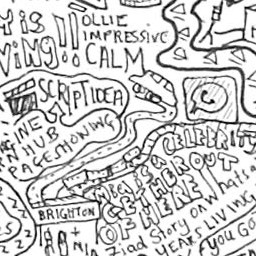 Y IS
VING!!
OLLIE
IMPRESSIVE
CALM
SCRIPT IDEA
INE
N HUB
PAGEMONING
CELEBRITY
GET HER OUT
OF HERE!
BRIGHTON
Ziad Story on whats
YEARS LIVING
YOU GO